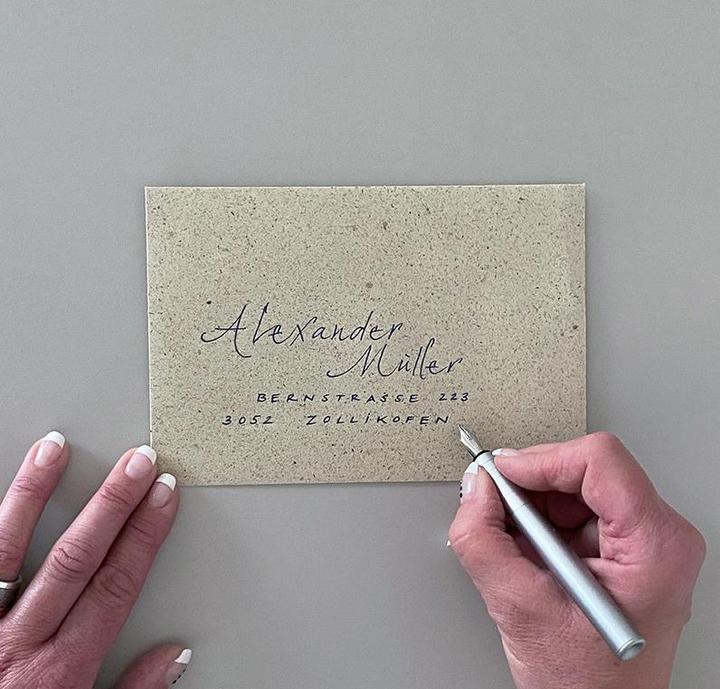 Alexander
Müller
BERNSTRASSE 223
3052 ZOLLIKOFEN